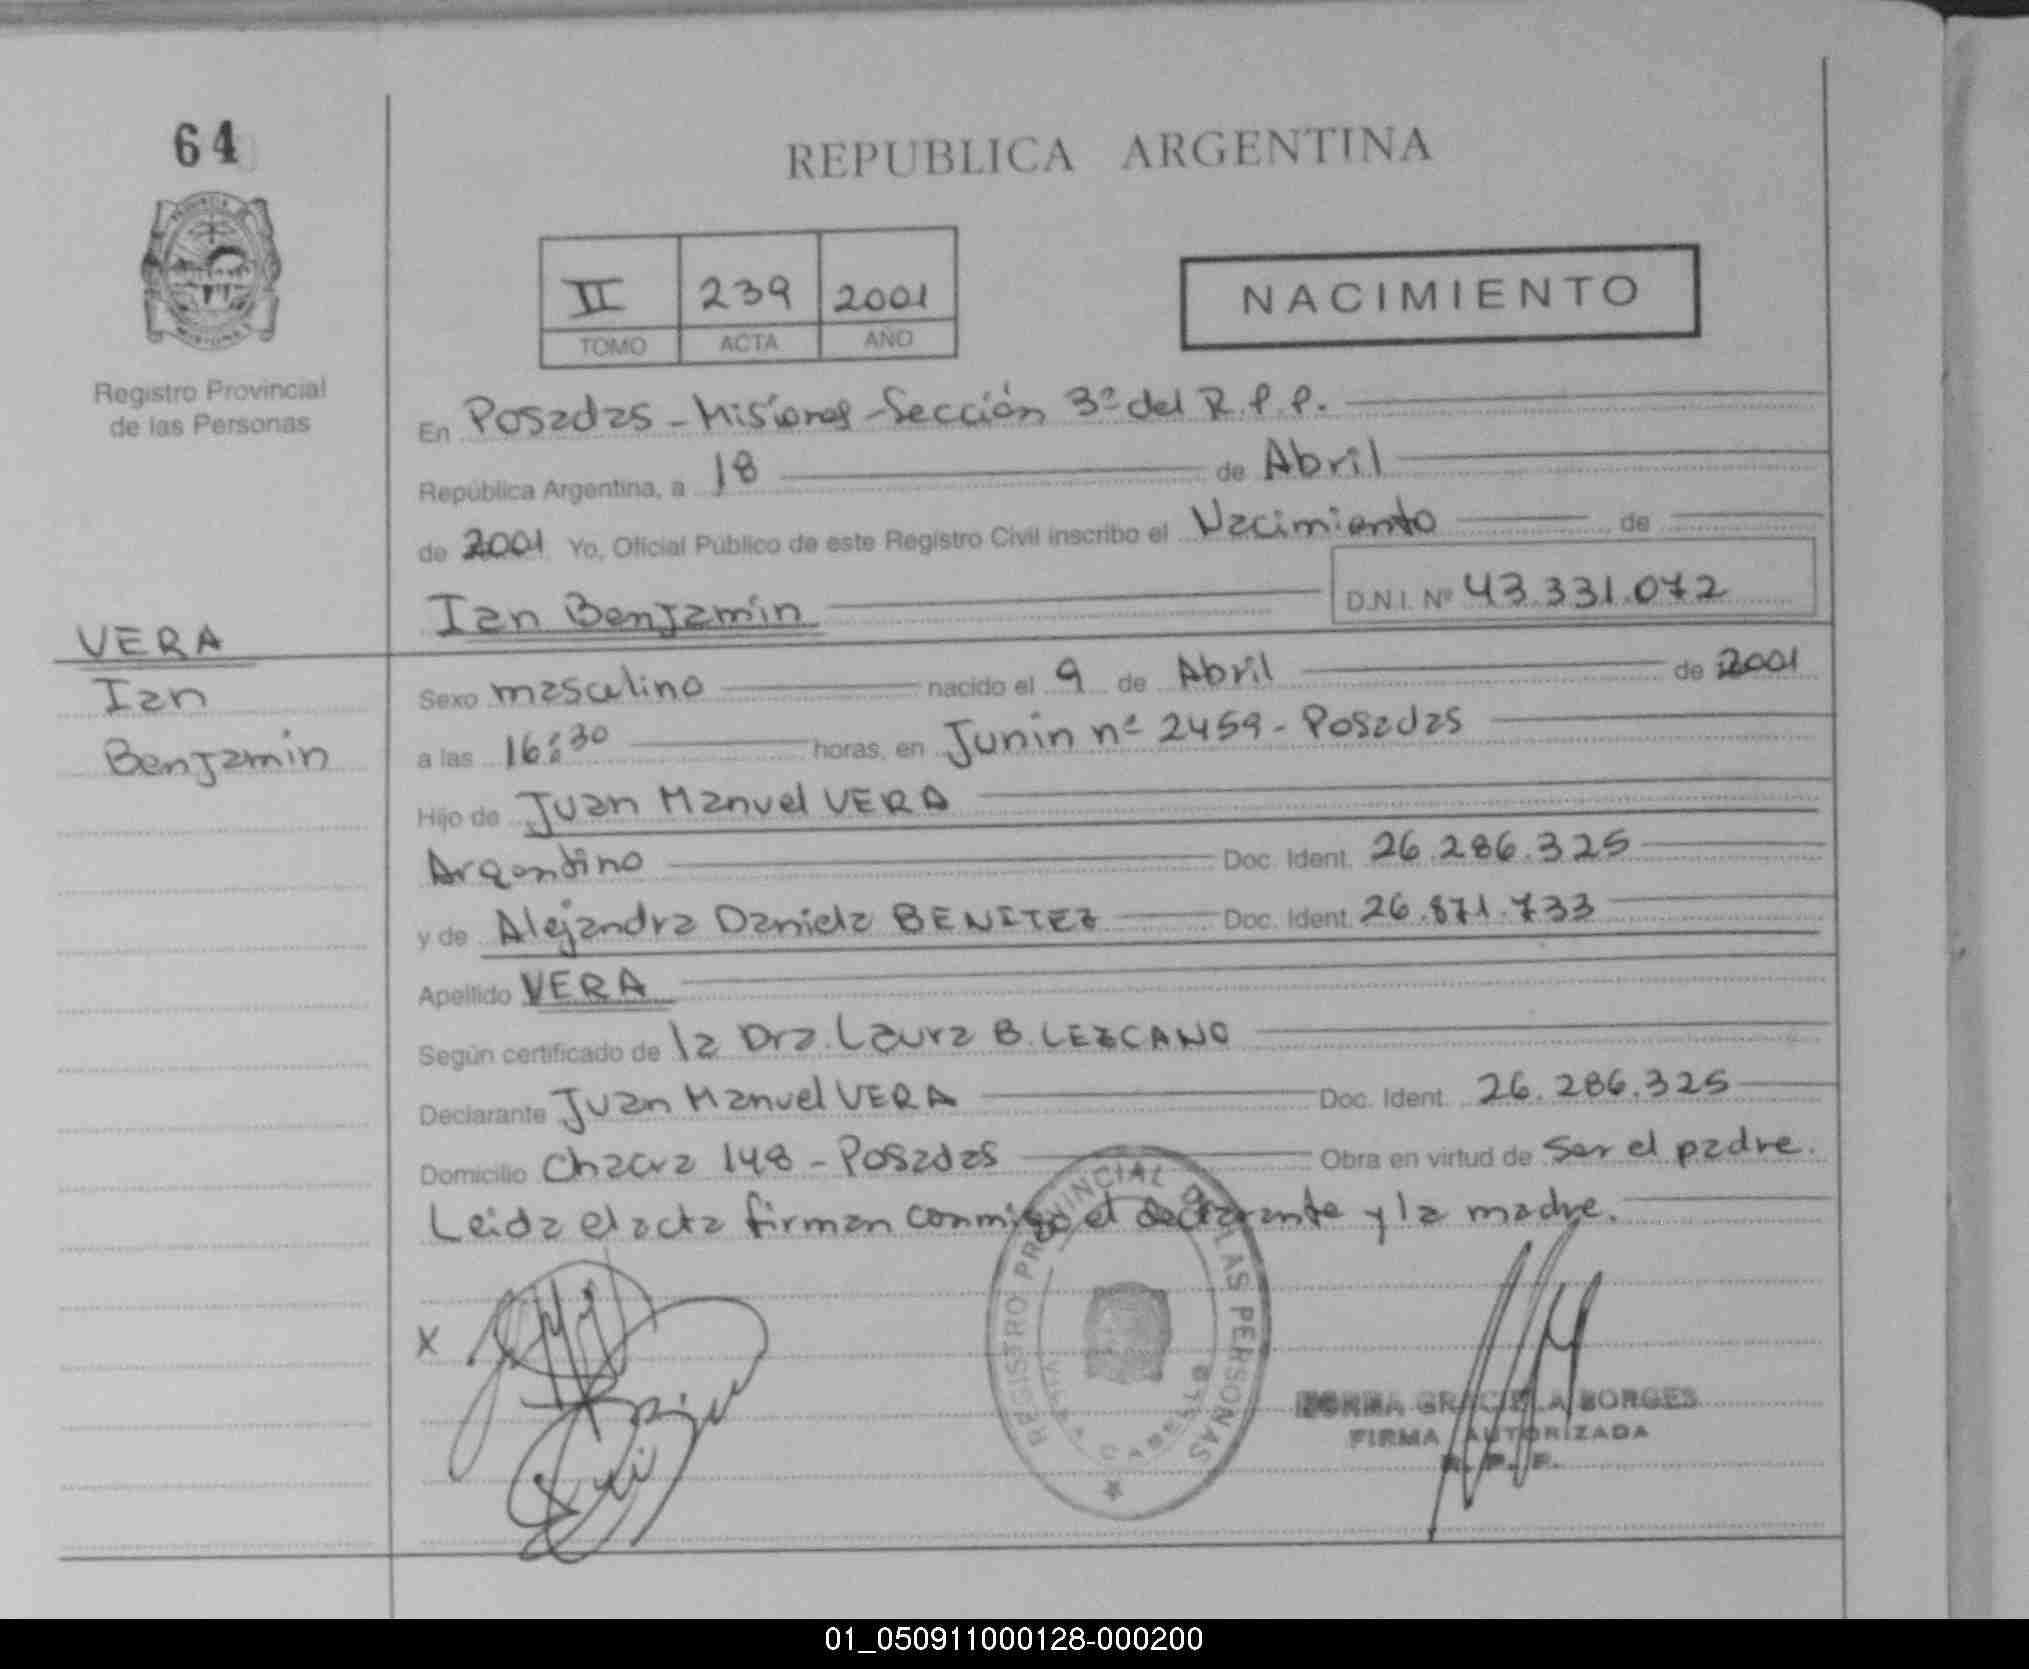 64
REPUBLICA ARGENTINA
II 239 2001
TOMO ACTA AÑO
NACIMIENTO
Registro Provincial
de las Personas
En Posadas - Misiones - Sección 3ª del R.P.P.
República Argentina, a 18 de Abril
de 2001 Yo, Oficial Público de este Registro Civil inscribo el Nacimiento de
Ian Benjamin D.N.I. Nº 43.331.072
VERA
Ian
Benjamin
Sexo masculino nacido el 9 de Abril de 2001
a las 16:30 horas, en Junin nº 2459 - Posadas
Hijo de Juan Manuel VERA
Argentino Doc. Ident. 26.286.325
y de Alejandra Daniela BENITEZ Doc. Ident. 26.871.733
Apellido VERA
Según certificado de la Dra. Laura B. LEZCANO
Declarante Juan Manuel VERA Doc. Ident. 26.286.325
Domicilio Chacra 148 - Posadas Obra en virtud de ser el padre.
Leida el acta firman conmigo el declarante y la madre.
X
REGISTRO PROVINCIAL DE LAS PERSONAS
NORMA GRACIELA BORGES
FIRMA AUTORIZADA
R. P. P.
01_050911000128-000200